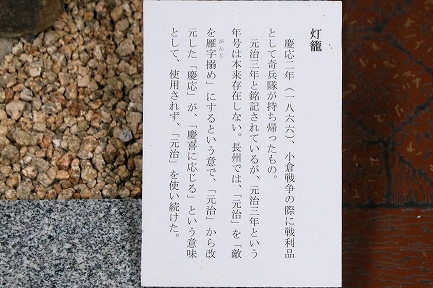 灯籠
慶応二年（一八六六）、小倉戦争の際に戦利品
として奇兵隊が持ち帰ったもの。
元治三年と銘記されているが、元治三年という
年号は本来存在しない。長州では、「元治」を「敵
を雁字搦め」にするという意で、「元治」から改
元した「慶応」が、「慶喜に応じる」という意味
として、使用されず、「元治」を使い続けた。